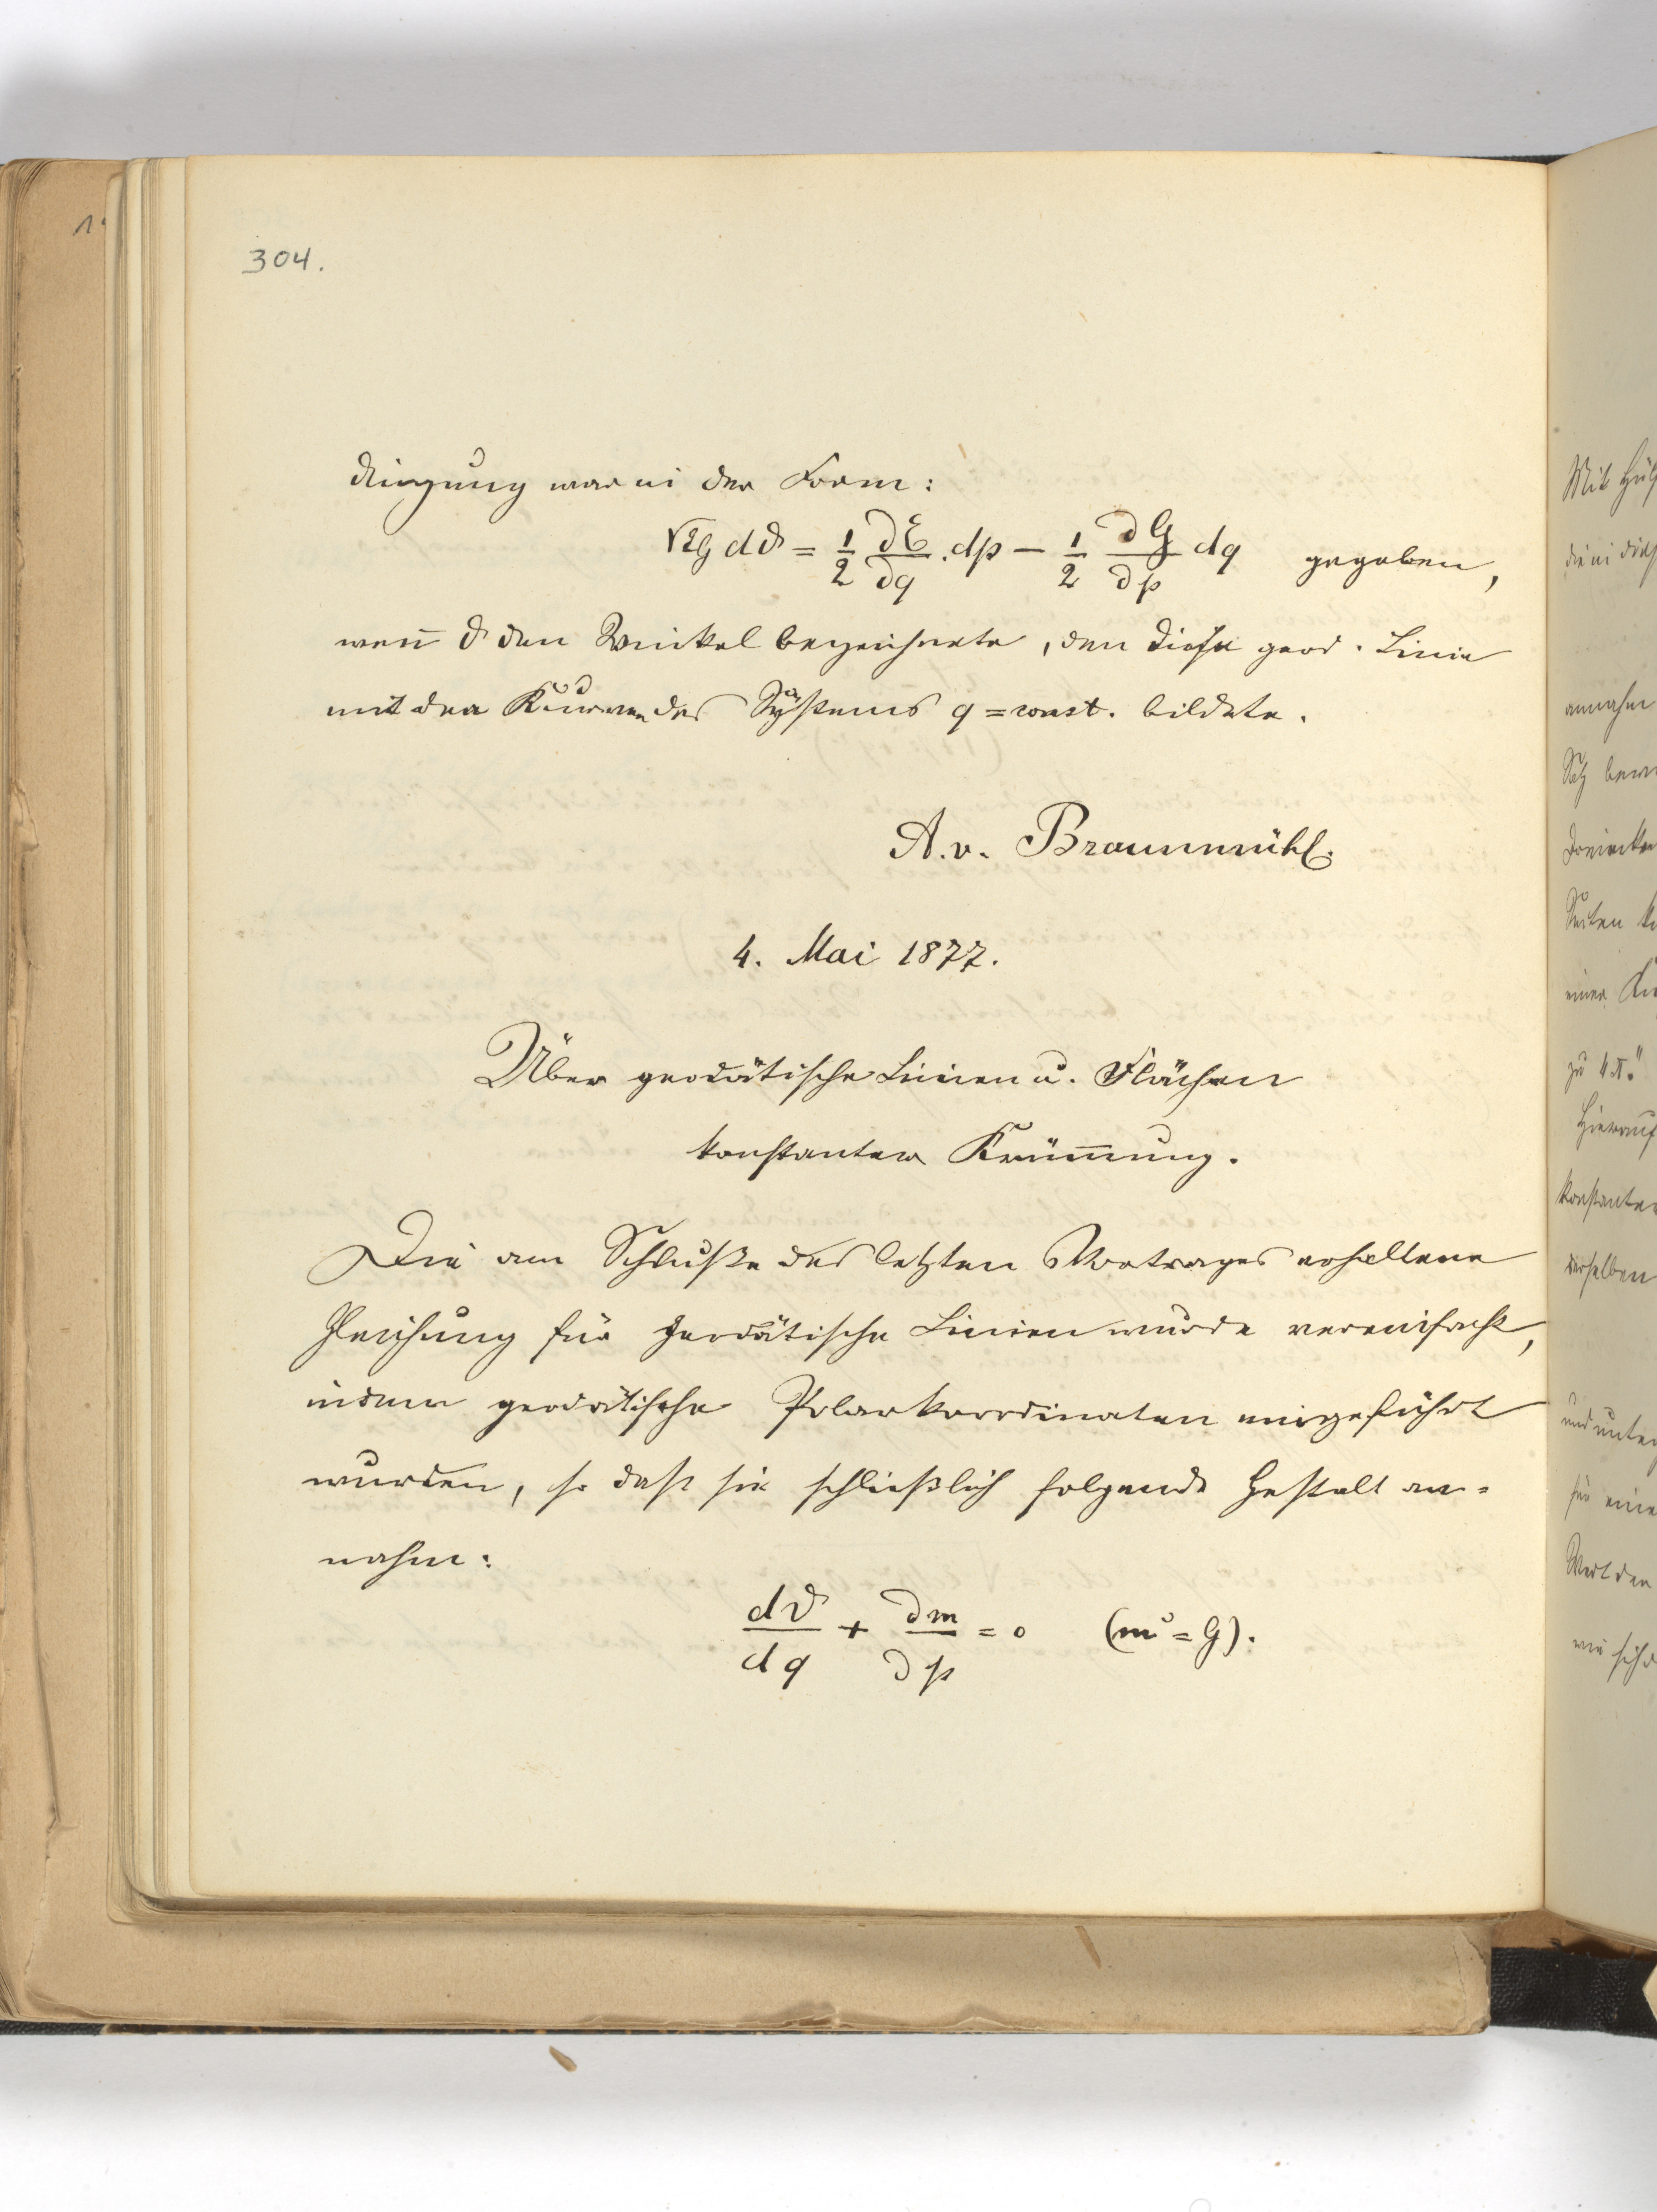 304.
dingung war in der Form:
√EG dϑ = 1/2 ∂E/∂q . dp − 1/2 ∂G/∂p dq gegeben,
weñ ϑ den Winkel bezeichnete, den diese geod. Linie
mit den Kurven des Systems q = const. bildete.
A. v. Braunmühl.
4. Mai 1877.
Über geodätische Linien u. Flächen
konstanter Krüm̄ung.
Die am Schluße des letzten Vortrages erhaltene
Gleichung für geodätische Linien wurde vereinfacht,
indem geodätische Polarkoordinaten eingeführt
wurden, so daß sie schließlich folgende Gestalt an-
nahm:
dϑ/dq + ∂m/∂p = 0 (m² = G).
Mit Hül
annahm
Satz
Seiten
einer
zu 4π."
Hierauf
konstanter
derselben
und unter
für eine
Wert den